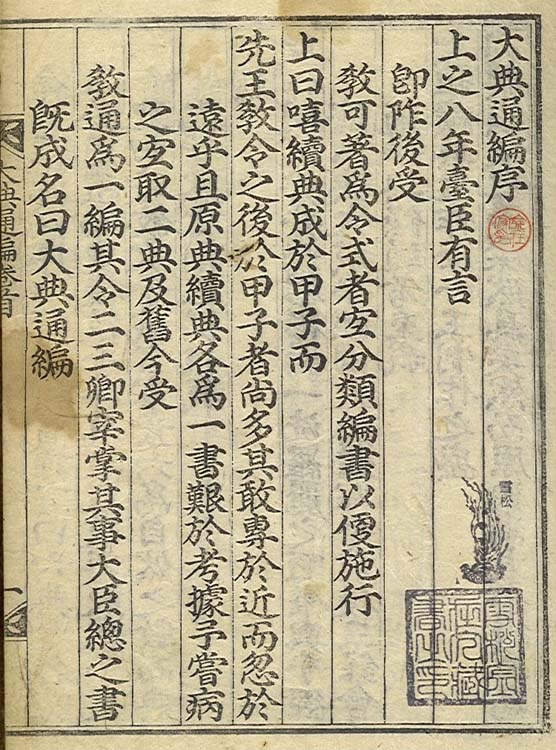 大典通編序
上之八年臺臣有言
卽阼後受
敎可著爲令式者宐分類編書以便施行
上曰嘻續典成於甲子而
先王敎令之後於甲子者尙多其敢專於近而忽於
遠乎且原典續典各爲一書艱於考據予嘗病
之宐取二典及舊今受
敎通爲一編其令二三卿宰掌其事大臣總之書
旣成名曰大典通編
大典通編卷首
一
雪松